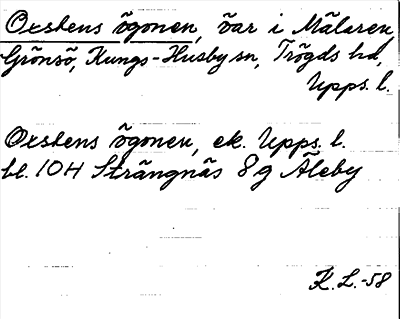 Oxstens ögonen, öar i Mälaren,
Grönsö, Kungs-Husby sn, Trögds hd,
Upps. l.
Oxstens ögonen, ek. Upps. l.
bl. 10H Strängnäs 8g Åleby
K.L.-58